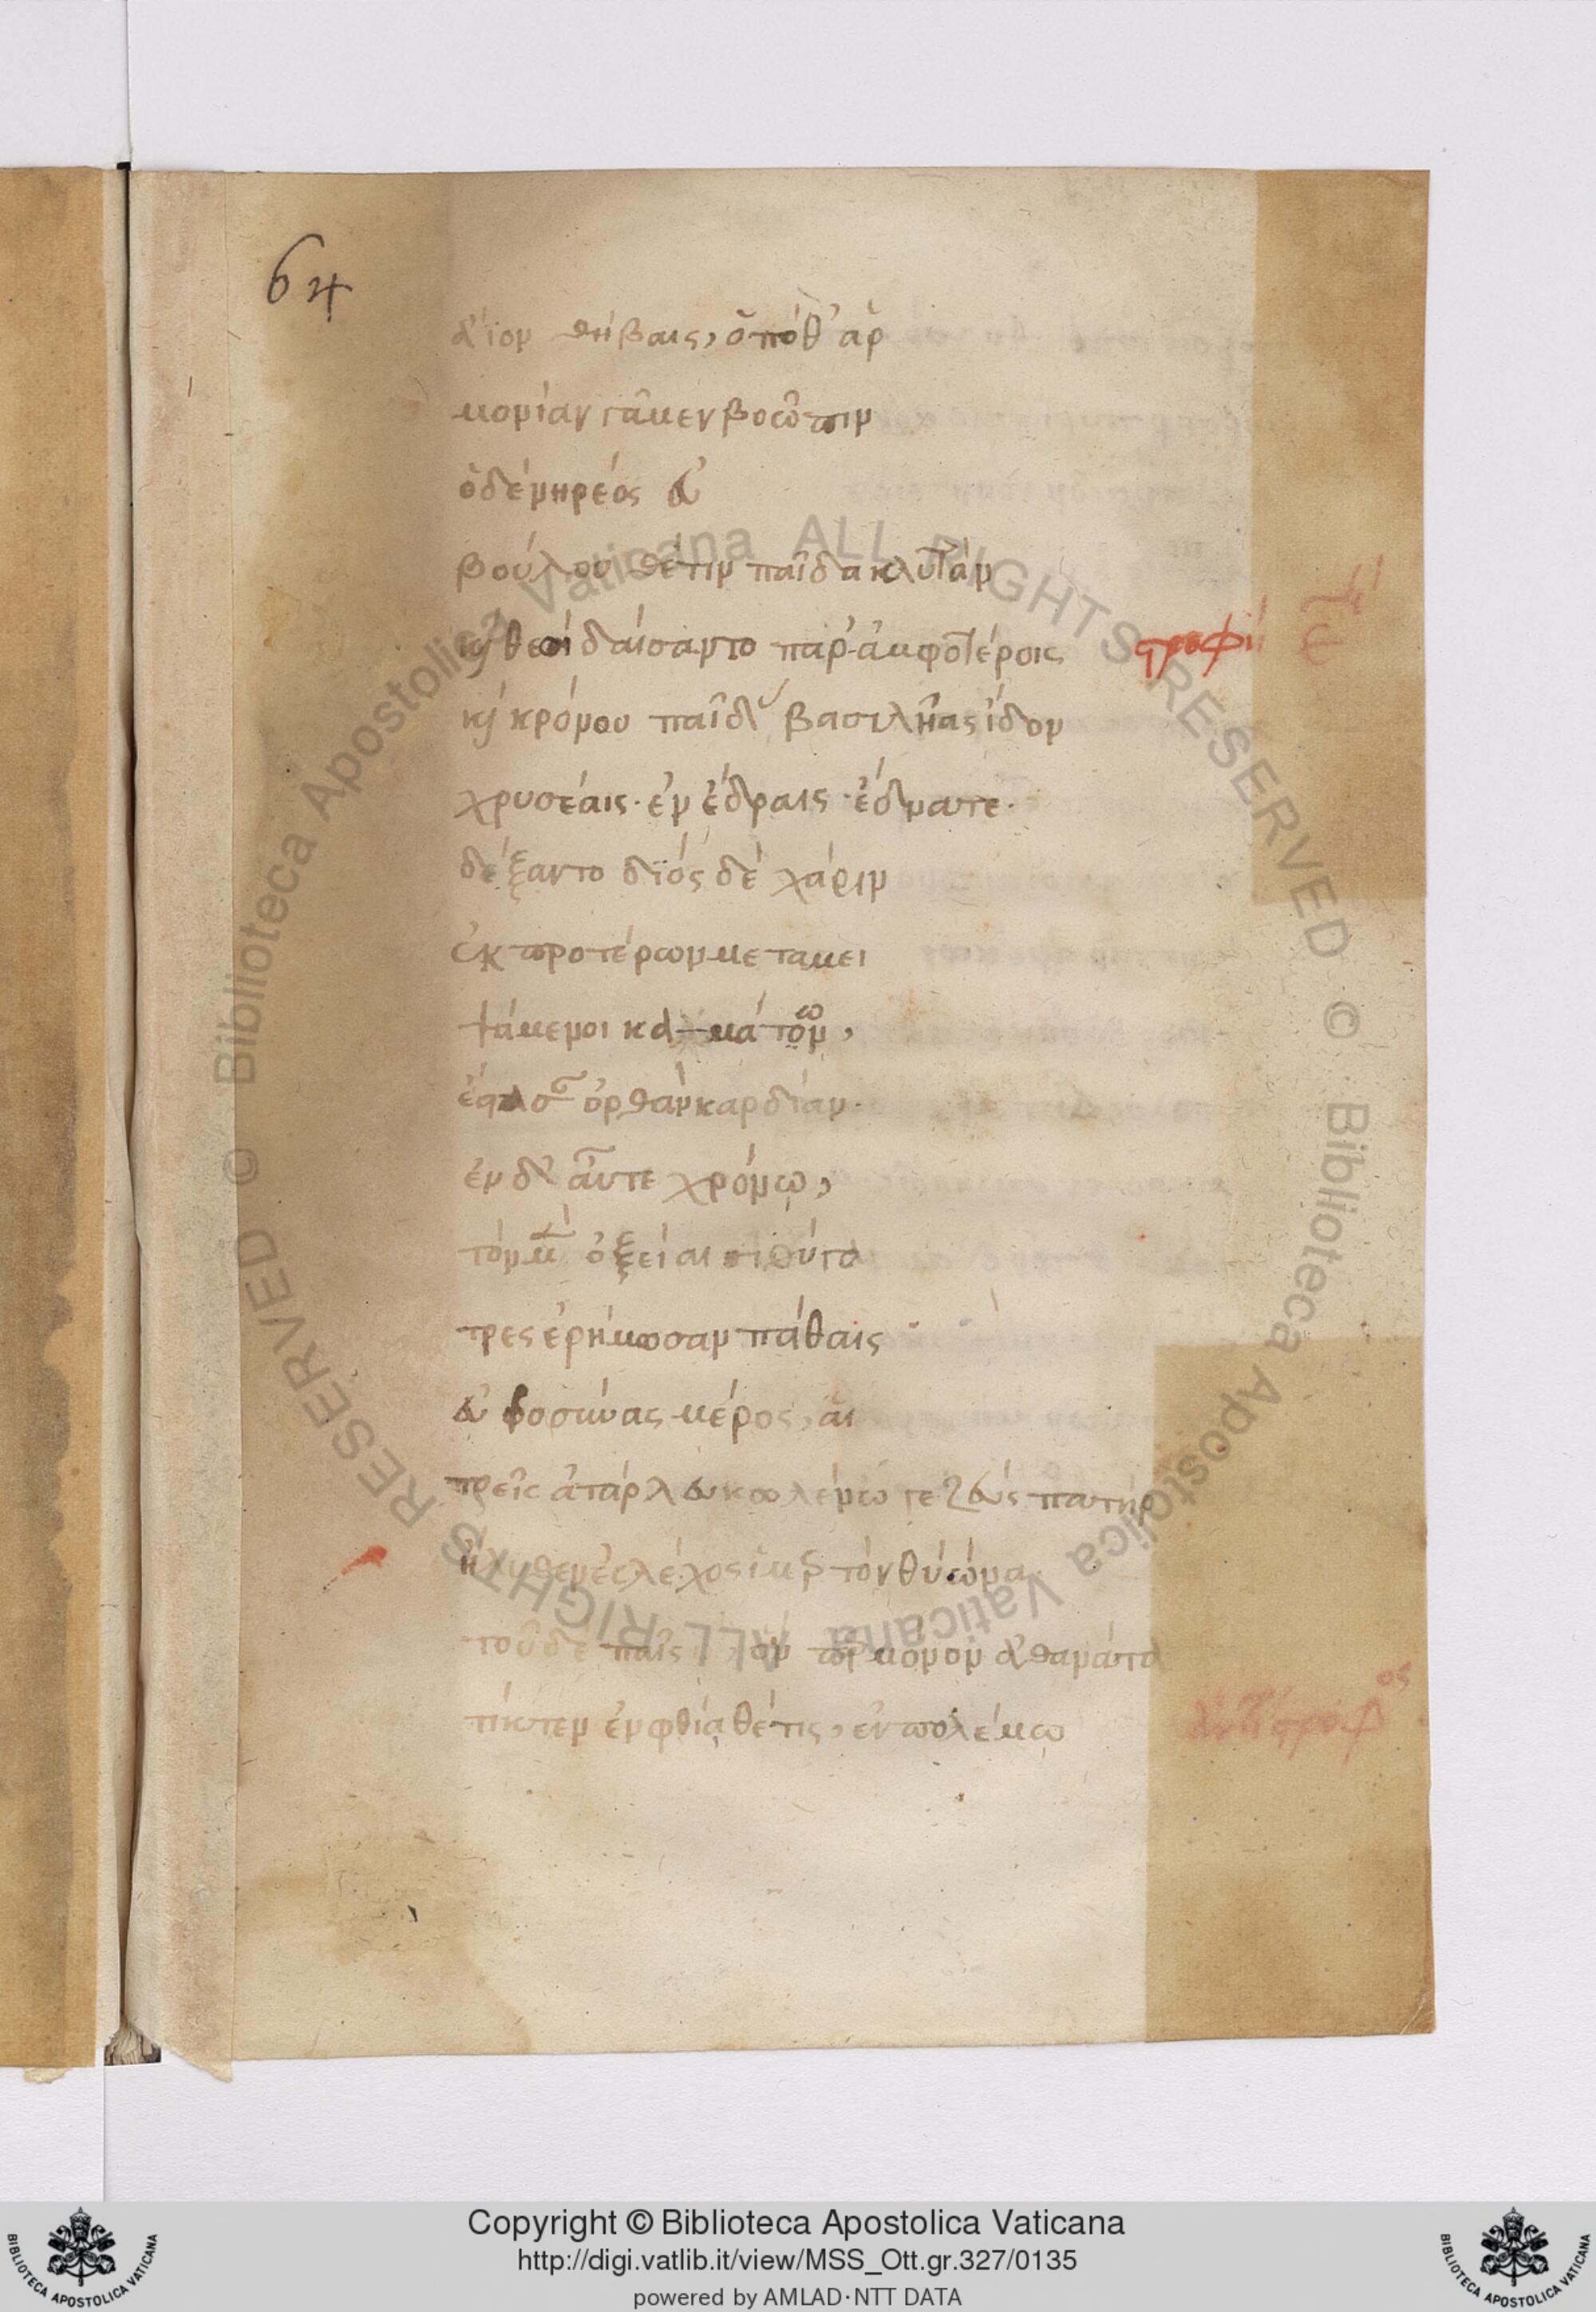 64
ἄϊον θήβαις, ὁπόθ' ἁρ
μονίαν γάμεν βοῶπιν
ὁ δὲ νηρέος εὐ
βούλου θέτιν παῖδα κλυτάν
καὶ θεοὶ δαίσαντο παρ' ἀμφοτέροις στροφὴ
καὶ κρόνου παῖδ' βασιλῆας ἴδον
χρυσέαις ἐν ἕδραις ἕδνα τε.
δέξαντο διὸς δὲ χάριν
ἐκ προτέρων μεταμει
ψάμενοι καμάτων,
ἔστασαν ὀρθὰν καρδίαν.
ἐν δ' αὖτε χρόνῳ,
τὸν μὲν ὀξείαισι θύγα
τρες ἐρήμωσαν πάθαις
εὐφροσύνας μέρος, αἱ
τρεῖς ἀτὰρ λευκωλένῳ γε ζεὺς πατὴρ
ἤλυθεν ἐς λέχος ἱμερτὸν θυώνᾳ
τοῦ δὲ παῖς ὃν περ μόνον ἀθανάτα
τίκτεν ἐν φθίᾳ θέτις, ἐν πολέμῳ
ἀντίστροφος
Copyright © Biblioteca Apostolica Vaticana
http://digi.vatlib.it/view/MSS_Ott.gr.327/0135
powered by AMLAD·NTT DATA
BIBLIOTECA APOSTOLICA VATICANA
BIBLIOTECA APOSTOLICA VATICANA
© Biblioteca Apostolica Vaticana ALL RIGHTS RESERVED © Biblioteca Apostolica Vaticana ALL RIGHTS RESERVED